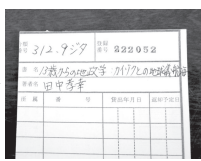 分類番号 312.9ジタ 登録番号 222052
書名 13歳からの地政学:カイゾクとの地球儀航海
著者名 田中孝幸
所属 番号 貸出年月日 返却予定日